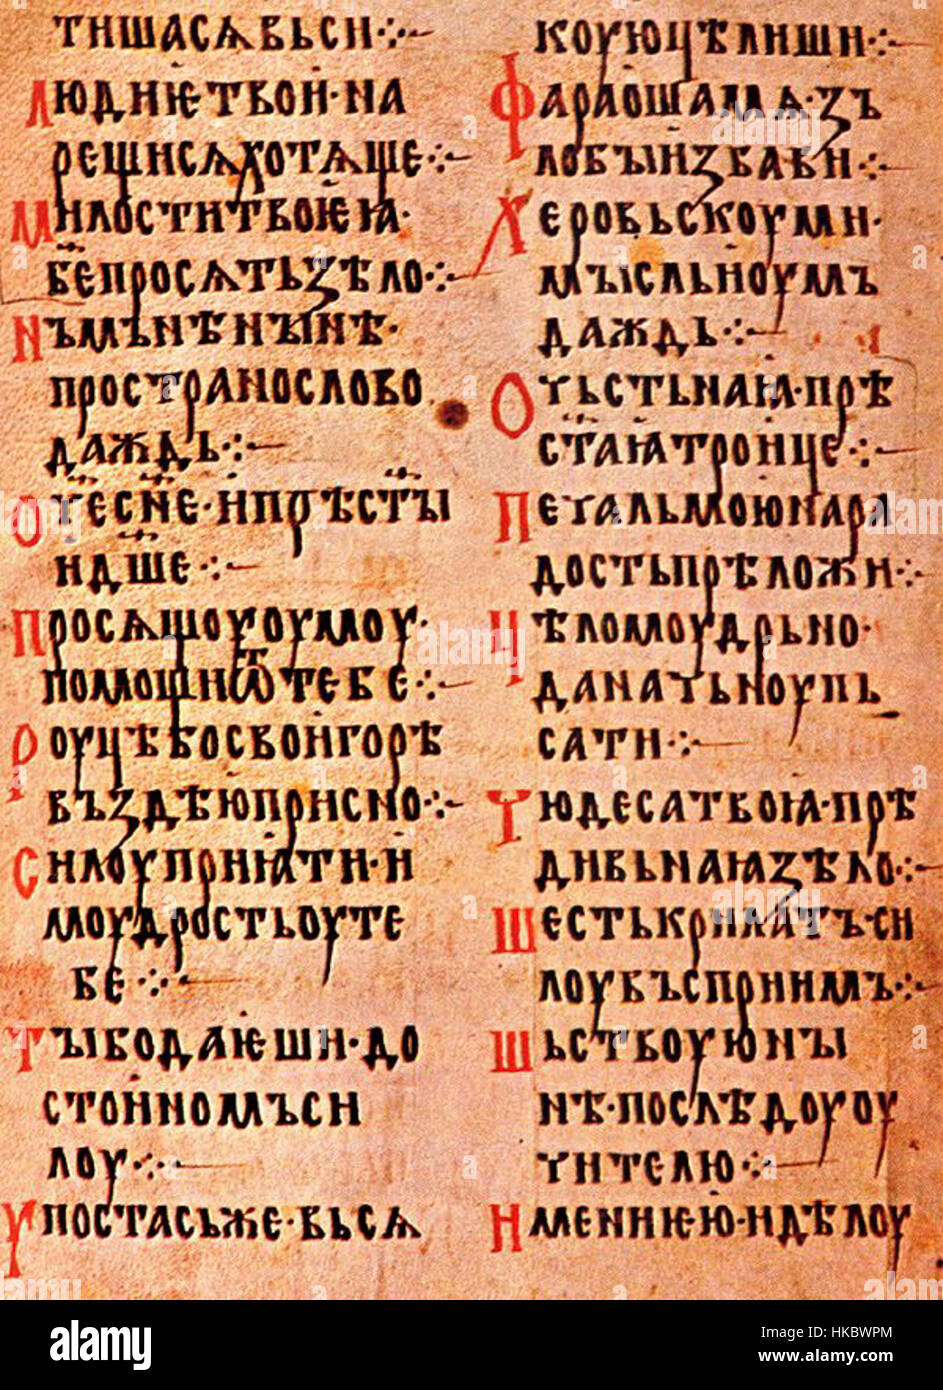 тишасѧвьси⁘
людиѥтвои·на
рещисѧхотѧще⁘
милоститвоѥꙗ·
бе҃просѧтьзѣло⁘
нъмьнѣнынѣ·
пространослово
даждь⁘
оч҃есн҃е·ипрѣст҃ы
идш҃е⁘
просѧщоуоумоу·
помощиѿтебе⁘
роуцѣбосвоигорѣ
въздѣюприсно⁘
силоуприꙗти·и
моудростьоуте
бе⁘
тыбодаѥши·до
стоиномъси
лоу⁘
упостасьже·вьсѧ
коуюцѣлиши⁘
фараошамѧ·зъ
лобыизбави⁘
херовьскоуми·
мысльноумъ
даждь⁘
очьстьнаꙗ·прѣ
ст҃аꙗтроице⁘
печальмоюнара
достьпрѣложи⁘
цѣломоудрьно·
даначьноупь
сати⁘
чюдесатвоꙗ·прѣ
дивьнаꙗзѣло⁘
шестькрилатъ·си
лоувъсприимъ⁘
шьствоуюны
нѣ·послѣдоуоу
чителю⁘
имениѥю·идѣлоу
alamy
Image ID: HKBWPM
www.alamy.com